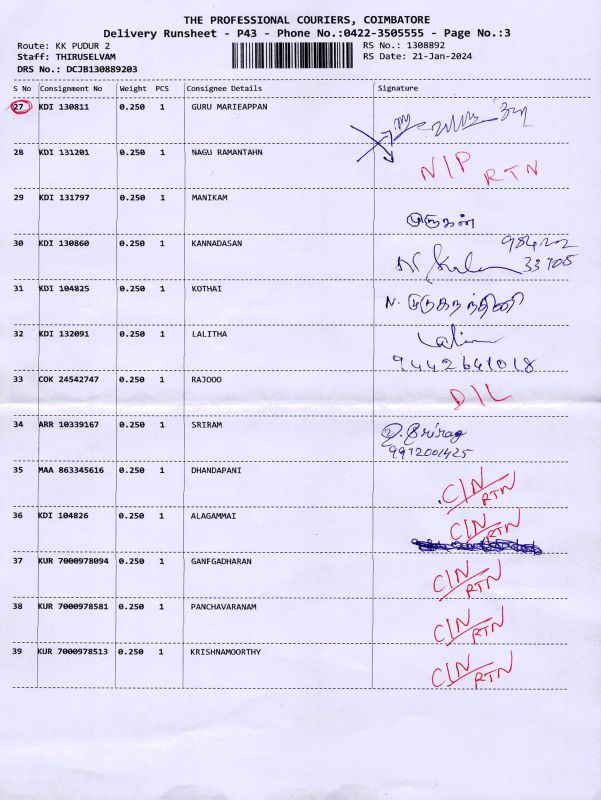 THE PROFESSIONAL COURIERS, COIMBATORE
Delivery Runsheet - P43 - Phone No.:0422-3505555 - Page No.:3
Route: KK PUDUR 2
RS No.: 1308892
Staff: THIRUSELVAM
RS Date: 21-Jan-2024
DRS No.: DCJB130889203
S No Consignment No Weight PCS Consignee Details Signature
27 KDI 130811 0.250 1 GURU MARIEAPPAN
28 KDI 131201 0.250 1 NAGU RAMANTAHN
N/P RTN
29 KDI 131797 0.250 1 MANIKAM
முருகன்
30 KDI 130860 0.250 1 KANNADASAN
984222
33705
31 KDI 104825 0.250 1 KOTHAI
N. முருகநந்தினி
32 KDI 132091 0.250 1 LALITHA
9442641018
33 COK 24542747 0.250 1 RAJOOO
D/L
34 ARR 10339167 0.250 1 SRIRAM
9972001425
35 MAA 863345616 0.250 1 DHANDAPANI
C/N RTN
36 KDI 104826 0.250 1 ALAGAMMAI
C/N RTN
37 KUR 7000978094 0.250 1 GANFGADHARAN
C/N RTN
38 KUR 7000978581 0.250 1 PANCHAVARANAM
C/N RTN
39 KUR 7000978513 0.250 1 KRISHNAMOORTHY
C/N RTN